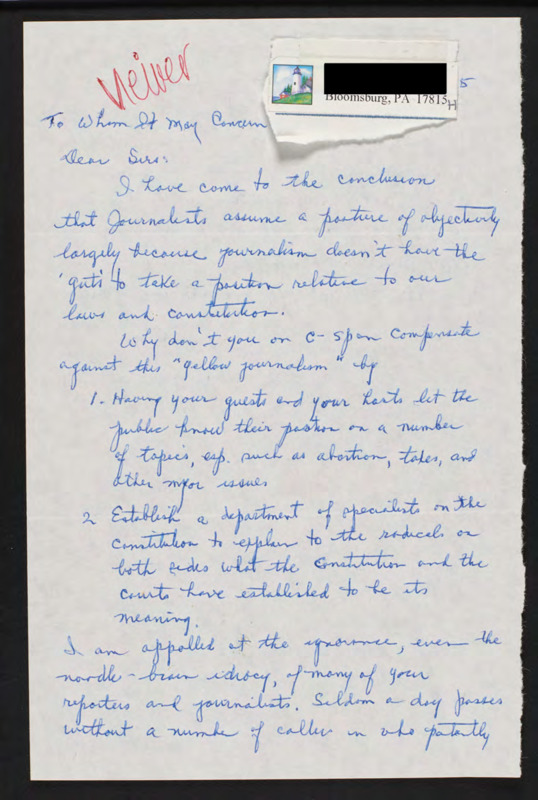 Viewer
5
Bloomsburg, PA 17815
H
To Whom It May Concern
Dear Sirs:
I have come to the conclusion
that Journalists assume a posture of objectivity
largely because journalism doesn't have the
'guts' to take a position relative to our
laws and constitution.
Why don't you on C-Span compensate
against this "yellow journalism" by
1. Having your guests and your hosts let the
public know their position on a number
of topics, esp. such as abortion, taxes, and
other major issues
2 Establish a department of specialists on the
Constitution to explain to the radicals on
both sides what the Constitution and the
courts have established to be its
meaning.
I am appalled at the ignorance, even the
noodle-brain idiocy, of many of your
reporters and journalists. Seldom a day passes
without a number of callers in who patently